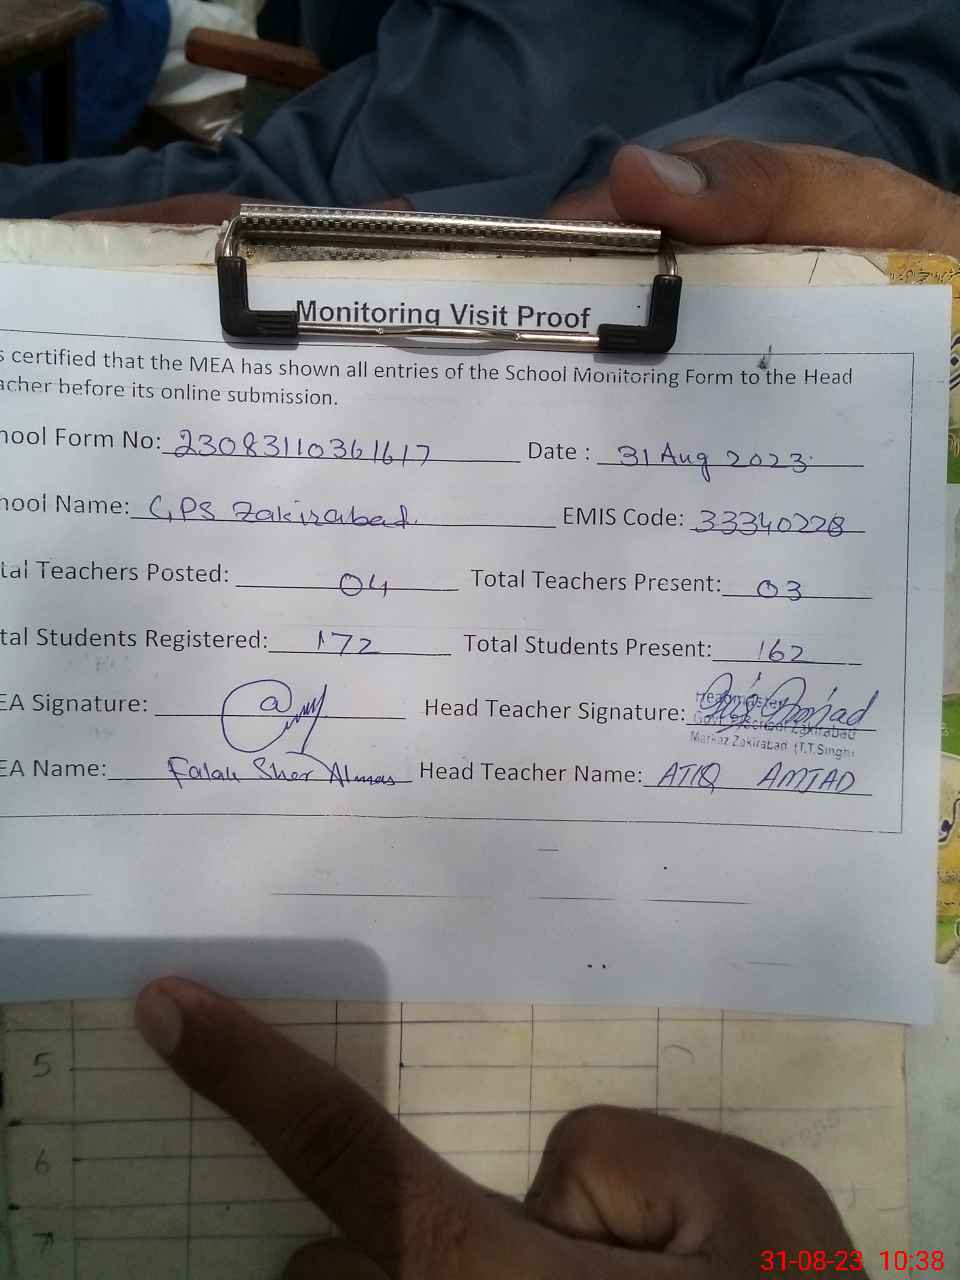 Monitoring Visit Proof
s certified that the MEA has shown all entries of the School Monitoring Form to the Head
acher before its online submission.
hool Form No: 23083110361617 Date : 31 Aug 2023
hool Name: GPS Zakirabad. EMIS Code: 33340228
tal Teachers Posted: 04 Total Teachers Present: 03
tal Students Registered: 172 Total Students Present: 162
EA Signature: Head Teacher Signature:
Headmaster
Govt. P/School Zakirabad
Markaz Zakirabad (T.T.Singh)
EA Name: Falak Sher Almas Head Teacher Name: ATIQ AMJAD
5
6
7
31-08-23 10:38